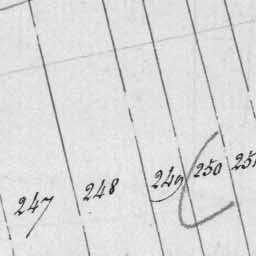 247 248 249 250 251